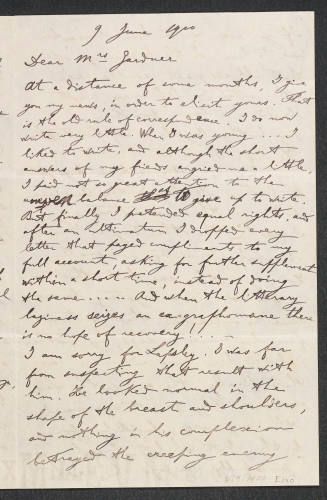 9 June 1900
Dear Mrs Gardner
At a distance of some months, I give
you my news, in order to elicit yours. That
is the old rule of correspondence. I do now
write very little. When I was young .... I
liked to write, and although the short
answers of my frieds angried me a little,
I paid not so great attention to the
balance to give up to write.
But finally I pretended equal rights, and
after an ultimatum I dropped every
letter that payed compliments to my
full account, asking for further supplement
within a short time, instead of doing
the same ..... And when the litterary
laziness seizes an ex-graphomane there
is no hope of recovery! ....
I am sorry for Lapsley. I was far
from suspecting that result with
him. He looked normal in the
shape of the breast and shoulders,
and nothing in his complexion
betrayed the creeping enemy.